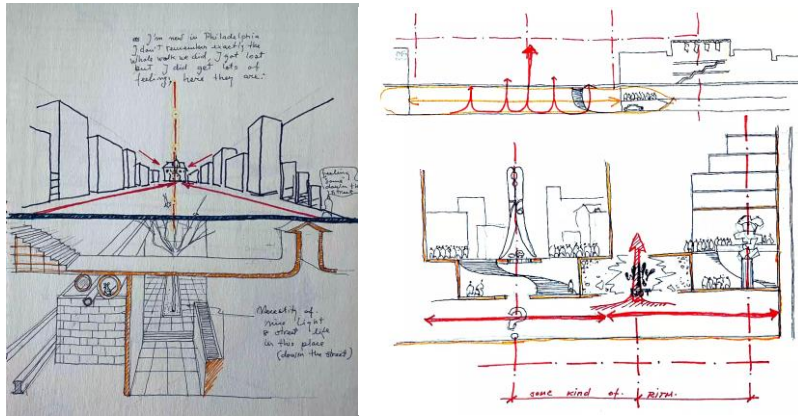 I'm now in Philadelphia
I don't remember exactly the
whole walk we did, I got lost
but I did get lots of
feeling, here they are:
feeling
down the
street
Necessity of
more light
& street life
in this place
(down the street)
WHY
NOT
?
some kind of. RITM.